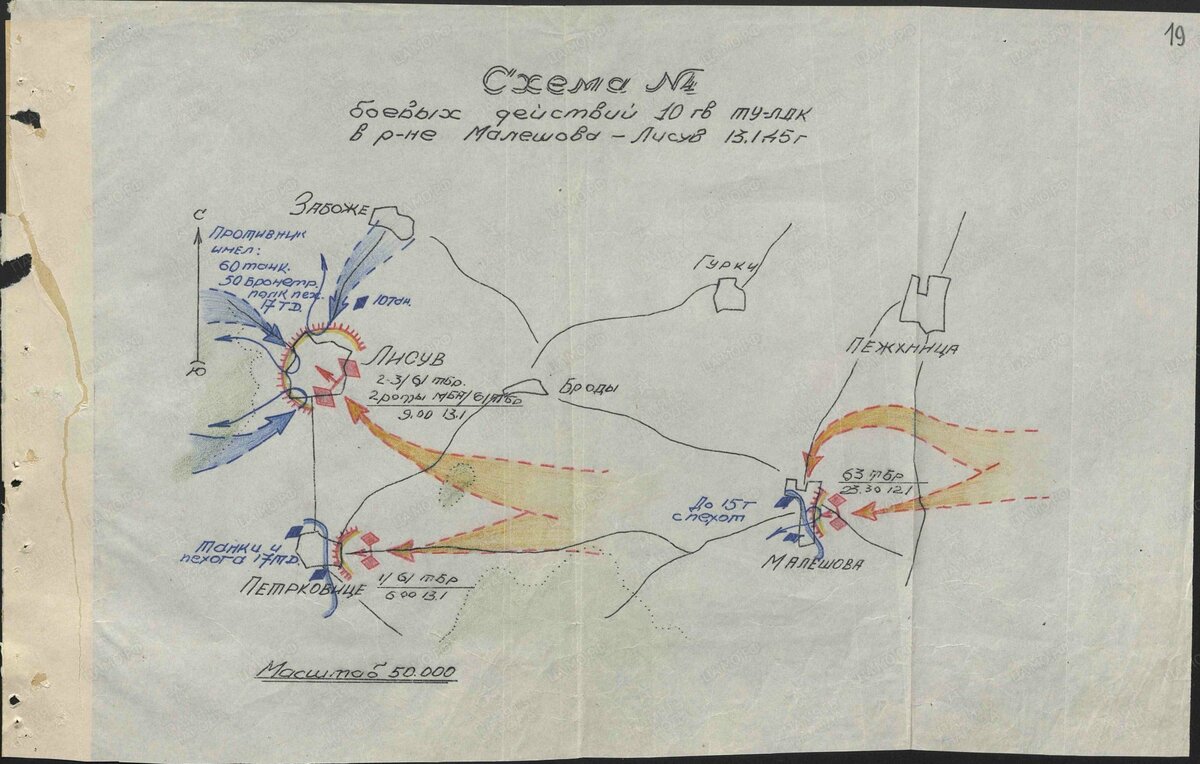 19
Схема №4
боевых действий 10 гв ту-лдк
в р-не Малешова – Лисув 13.1.45г
Забоже
С
Противник
имел:
60 танк.
50 бронетр.
полк пех.
17 ТД.
Ю
10 тан.
Гурки
Пежхница
Лисув
2-3/61 тбр.
2 роты МБА/61 тбр
9.00 13.1
Броды
63 тбр
23.30 12.1
До 15 т
с пехот
Малешова
Танки и
пехота 17 ТД.
Петрковице
1/61 тбр
6.00 13.1
Масштаб 50.000